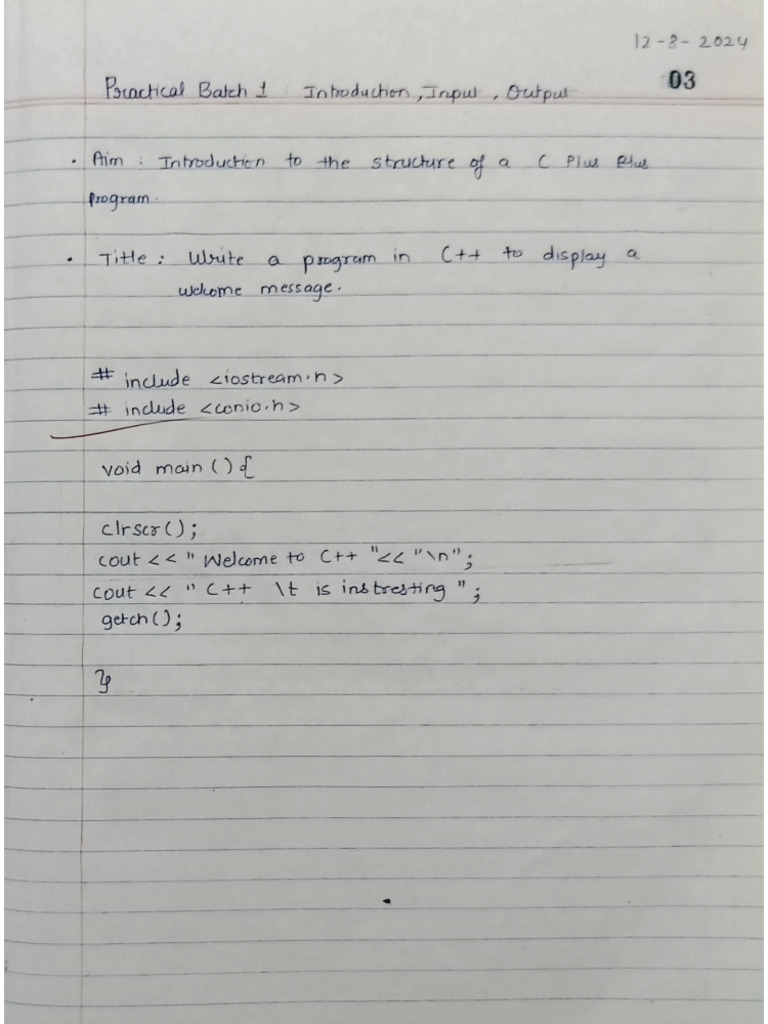 12-8-2024
03
Practical Batch 1 : Introduction, Input, Output
• Aim : Introduction to the structure of a C Plus Plus
program.
• Title : Write a program in C++ to display a
welcome message.
# include <iostream.h>
# include <conio.h>
void main () {
clrscr();
cout << " Welcome to C++ "<< "\n";
cout << " C++ \t is instresting ";
getch();
}